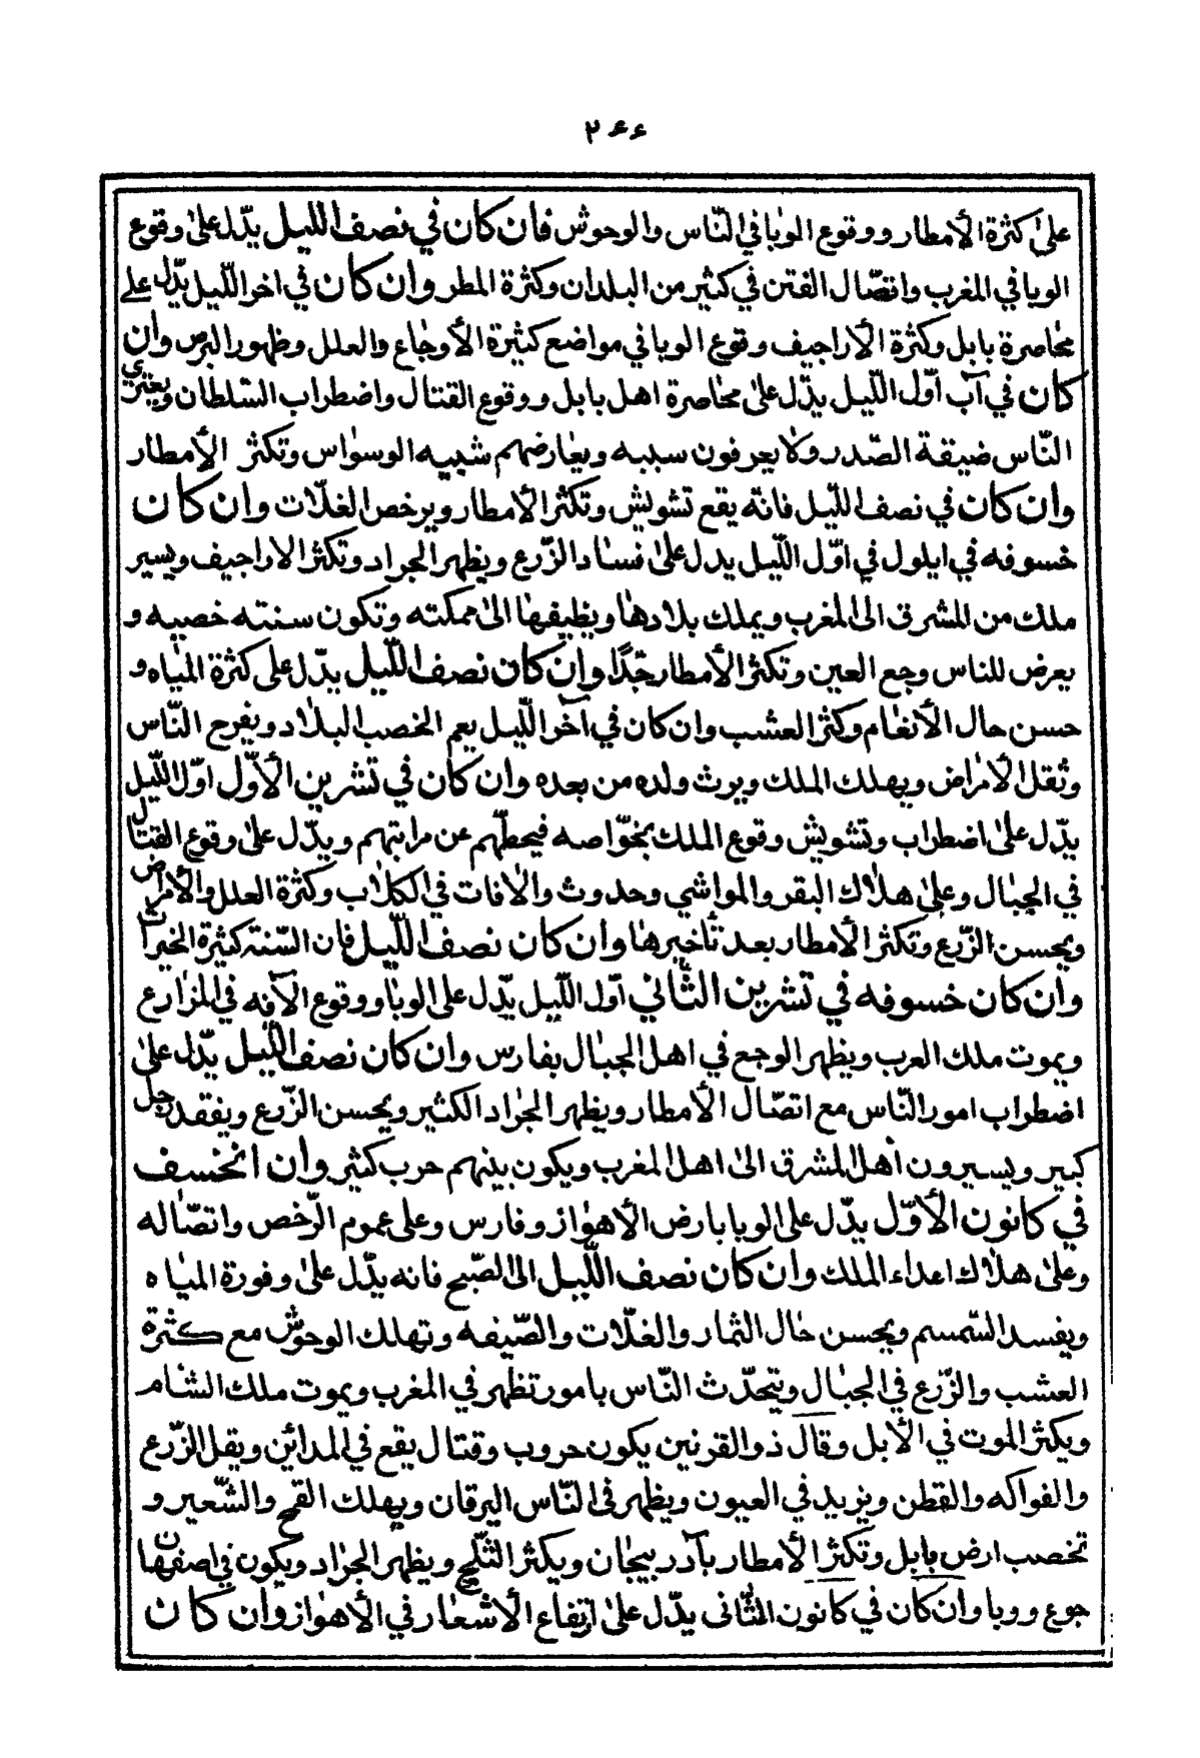 ٢٤٤
على كثرة الأمطار ووقوع الوبا في النّاس والوحوش فان كان في نصف الليل يدّل على وقوع
الوبا في المغرب واتصّال الفتن في كثير من البلدان وكثرة المطر وان كان في اخر اللّيل يدّل على
محاصرة بابل وكثرة الأراجيف وقوع الوبا في مواضع كثيرة الأوجاع والعلل وظهور البرص وان
كان في آب اوّل اللّيل يدّل على محاصرة اهل بابل ووقوع القتال واضطراب السّلطان ويعتري
النّاس ضيقة الصّدر ولا يعرفون سببه ويعارضهم شبيه الوسواس وتكثر الأمطار
وان كان في نصف اللّيل فانه يقع تشويش وتكثر الأمطار ويرخص الغلّات وان كان
خسوفه في ايلول في اوّل اللّيل يدل على فساد الزّرع ويظهر الجراد وتكثر الاراجيف ويسير
ملك من المشرق الى المغرب ويملك بلادها ويظيفها الى مملكته وتكون سنته خصبيه و
يعرض للناس وجع العين وتكثر الأمطار جّدًا وان كان نصف اللّيل يدّل على كثرة المياه و
حسن حال الأنعام وكثر العشب وان كان في آخر اللّيل يعم الخصب البلاد ويفرح النّاس
وتقل الأمراض ويهلك الملك ويرث ولده من بعده وان كان في تشرين الأوّل اوّل اللّيل
يدّل على اضطراب وتشويش وقوع الملك بخوّاصه فيحطّهم عن مراتبهم ويدّل على وقوع القتال
في الجبال وعلى هلاك البقر والمواشي وحدوث والافات في الكلاب وكثرة العلل والأمراض
ويحسن الزّرع وتكثر الأمطار بعد تأخيرها وان كان نصف اللّيل فان السّنة كثيرة الخيرات
وان كان خسوفه في تشرين الثّاني اوّل اللّيل يدّل على الوبا ووقوع الآفه في المزارع
ويموت ملك العرب ويظهر الوجع في اهل الجبال بفارس وان كان نصف اللّيل يدّل على
اضطراب امور النّاس مع اتصّال الأمطار ويظهر الجراد الكثير ويحسن الزّرع ويفقد رجل
كبير ويسيرون أهل المشرق الى اهل المغرب ويكون بينهم حرب كثير وان انخسف
في كانون الأوّل يدّل على الوبا بارض الأهواز وفارس وعلى عموم الرّخص واتصّاله
وعلى هلاك اعداء الملك وان كان نصف اللّيل الى الصّبح فانه يدّل على وفورة المياه
ويفسد السّمسم ويحسن حال الثمار والغلّات والصّيفه وتهلك الوحوش مع كثرة
العشب والزّرع في الجبال ويتحدّث النّاس بامور تظهر في المغرب ويموت ملك الشام
ويكثر الموت في الأبل وقال ذو القرنين يكون حروب وقتال يقع في المدائن ويقل الزّرع
والفواكه والقطن ويزيد في العيون ويظهر في النّاس اليرقان ويهلك القمح والشّعير و
تخصب ارض بابل وتكثر الأمطار بآدربيجان ويكثر الثّلج ويظهر الجراد ويكون في اصفهان
جوع ووبا وان كان في كانون الثّانى يدّل على ارتفاع الأشعار في الأهواز وان كان